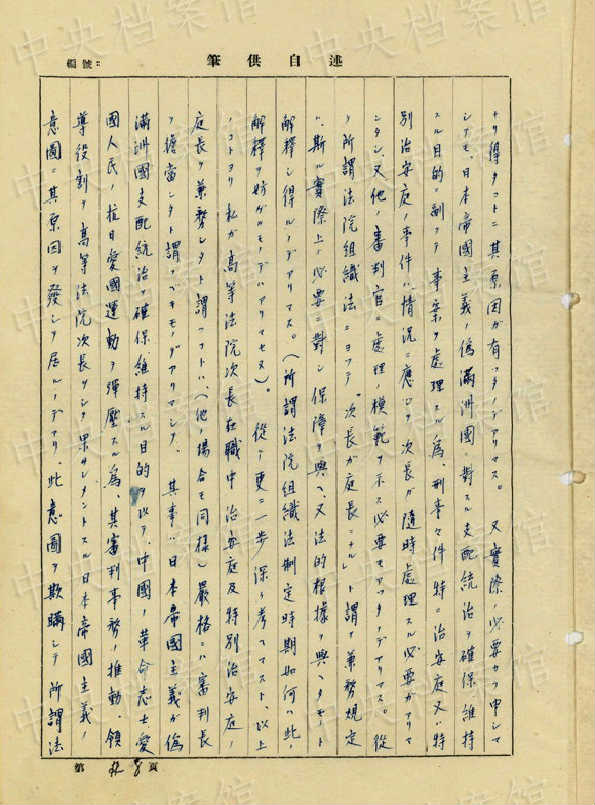 編號：
筆供自述
ヲ得タコトニ其原因ガ有ッタノデアリマス。又實際ノ必要カラ申シマ
シテモ、日本帝國主義ノ偽滿洲國ニ對スル支配統治ヲ確保維持
スル目的ニ副フテ事案ヲ處理スル爲、刑事々件特ニ治安庭又ハ特
別治安庭ノ事件ハ情況ニ應ジテ次長ガ隨時處理スル必要ガアリマ
シタシ、又他ノ審判官ニ處理ノ模範ヲ示ス必要モアッタノデアリマス。從
ッテ所謂法院組織法ニヨッテ「次長ガ庭長ニナル」ト謂フ兼務規定
ハ、斯ル實際上ノ必要ニ對シ保障ヲ與ヘ、又法的根據ヲ與ヘタモノト
解釋シ得ルノデアリマス。（所謂法院組織法制定時期如何ハ此ノ
解釋ヲ妨ゲルモノデハアリマセヌ）。從ッテ更ニ一歩深ク考ヘマスト、以上
ノコトヨリ私ガ高等法院次長在職中治安庭及特別治安庭ノ
庭長ヲ兼務シタト謂フコトハ（他ノ場合モ同様）嚴格ニハ審判長
ヲ擔當シタト謂フベキモノデアリマシテ、其事ハ日本帝國主義ガ偽
滿洲國支配統治ヲ確保維持スル目的ヲ以テ、中國ノ革命志士愛
國人民ノ抗日愛國運動ヲ彈壓スル爲、其審判事務ノ推動、領
導役割ヲ高等法院次長ヲシテ果サシメントスル日本帝國主義ノ
意圖ニ其原因ヲ發シテ居ルノデアリ、此意圖ヲ欺瞞シテ所謂法
第 頁
中央档案馆